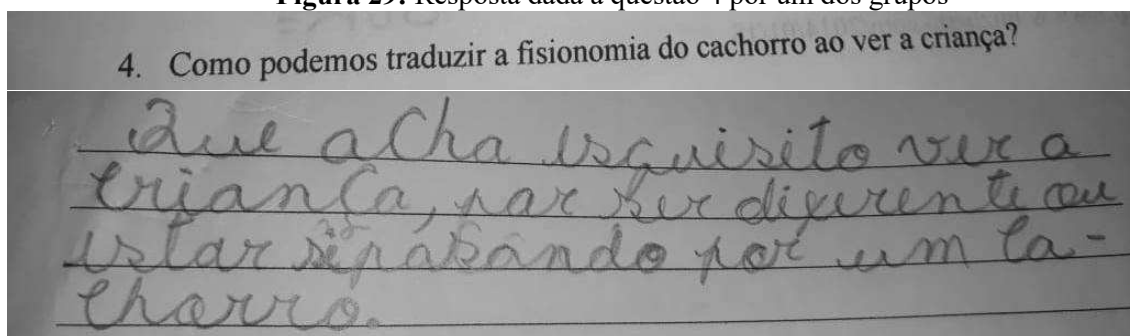 Figura 29: Resposta dada à questão 4 por um dos grupos
4. Como podemos traduzir a fisionomia do cachorro ao ver a criança?
Que acha esquisito ver a
criança, por ser diferente ou
estar se pasando por um ca-
chorro.